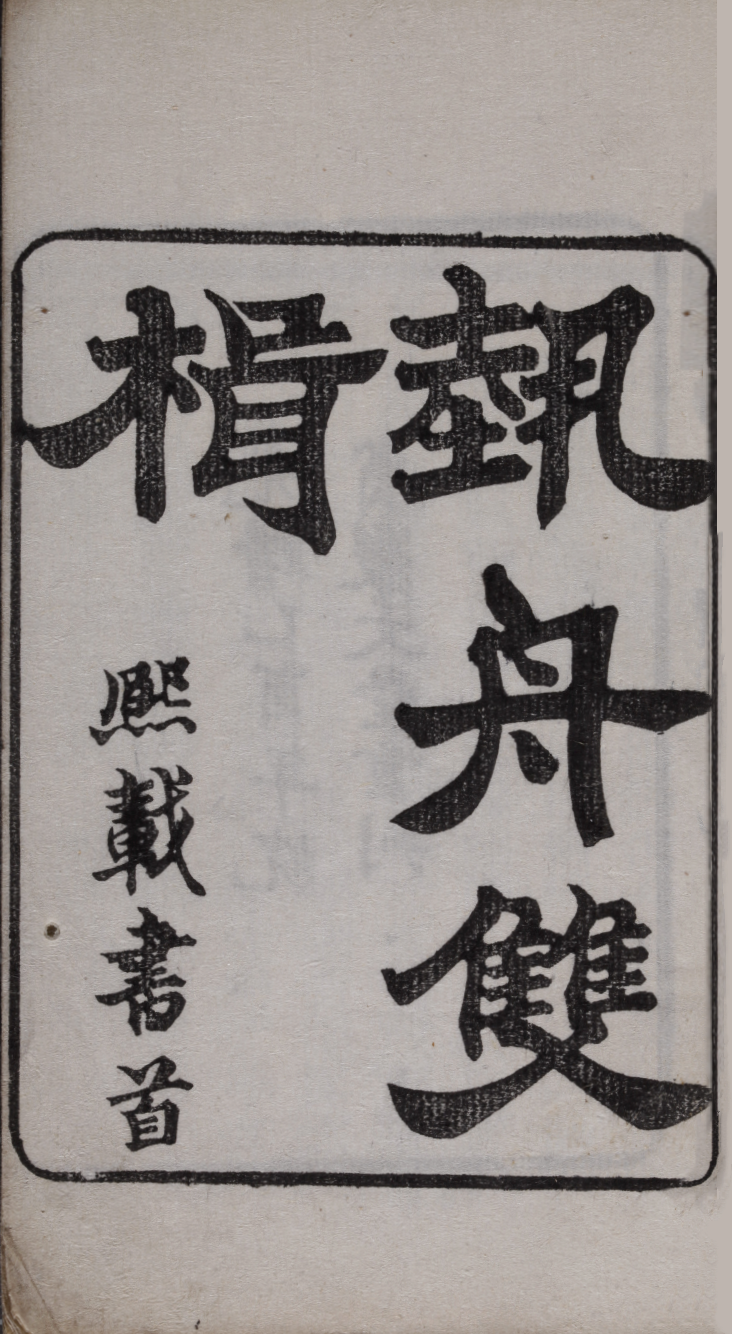 埶舟雙
楫
熙載書首